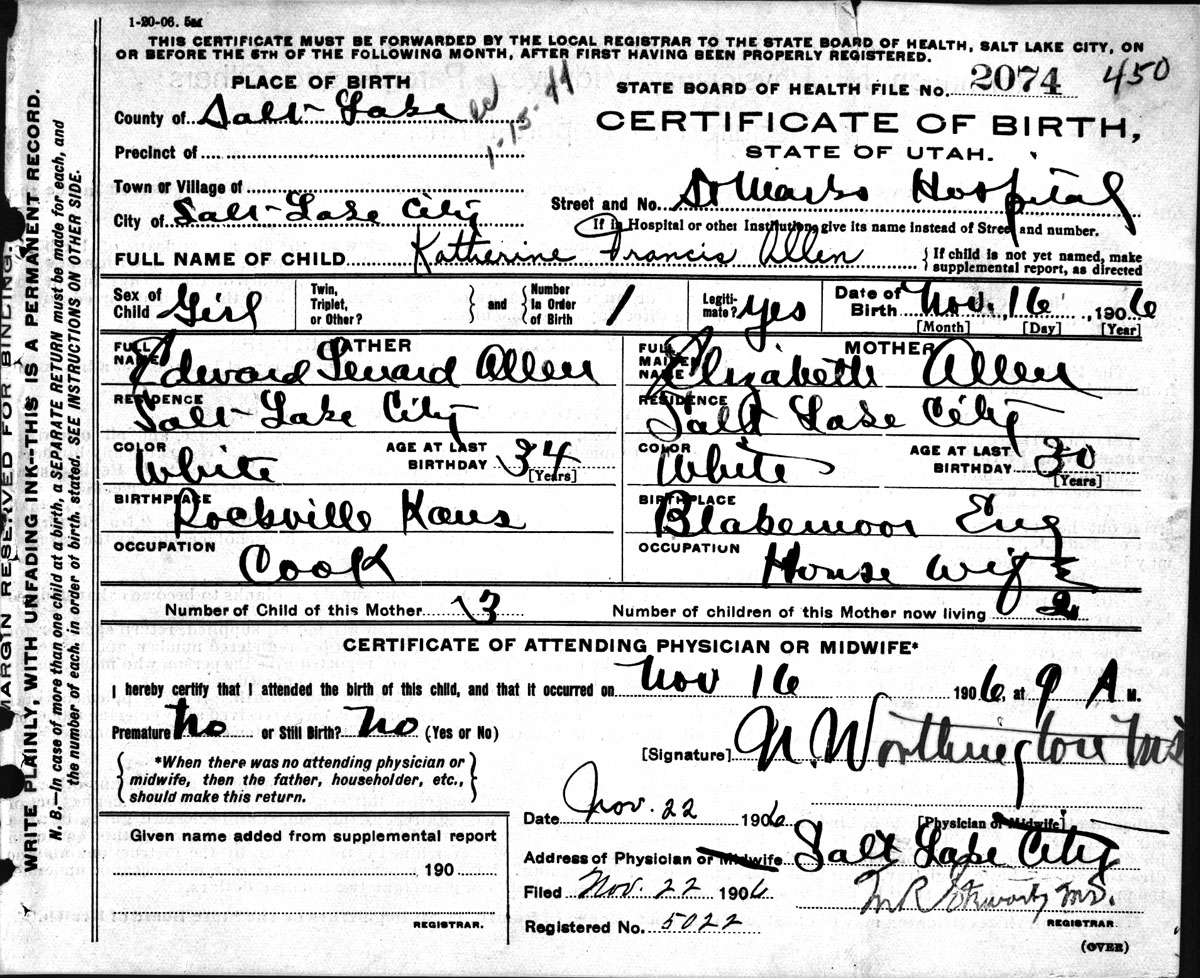 1-20-06. 5m
THIS CERTIFICATE MUST BE FORWARDED BY THE LOCAL REGISTRAR TO THE STATE BOARD OF HEALTH, SALT LAKE CITY, ON
OR BEFORE THE 5TH OF THE FOLLOWING MONTH, AFTER FIRST HAVING BEEN PROPERLY REGISTERED.
PLACE OF BIRTH
STATE BOARD OF HEALTH FILE No. 2074 450
County of Salt Lake
1-15-44
CERTIFICATE OF BIRTH,
Precinct of
STATE OF UTAH.
Town or Village of
Street and No. St Marks Hospital
City of Salt Lake City
If in Hospital or other Institution, give its name instead of Street and number.
FULL NAME OF CHILD Katherine Francis Allen
If child is not yet named, make
supplemental report, as directed
Sex of Child Girl Twin, Triplet, or Other? and Number in Order of Birth 1 Legiti-mate? yes Date of Birth Nov. 16, 1906
[Month] [Day] [Year]
FATHER
FULL NAME Edward Lenard Allen
MOTHER
FULL MAIDEN NAME Elizabeth Allen
RESIDENCE Salt Lake City
RESIDENCE Salt Lake City
COLOR White AGE AT LAST BIRTHDAY 34 [Years]
COLOR White AGE AT LAST BIRTHDAY 30 [Years]
BIRTHPLACE Rockville Kans
BIRTHPLACE Blakemoor Eng
OCCUPATION Cook
OCCUPATION House wife
Number of Child of this Mother 3
Number of children of this Mother now living 2
CERTIFICATE OF ATTENDING PHYSICIAN OR MIDWIFE*
I hereby certify that I attended the birth of this child, and that it occurred on Nov 16 1906, at 9 A M.
Premature No or Still Birth? No (Yes or No)
[Signature] Worthington
*When there was no attending physician or
midwife, then the father, householder, etc.,
should make this return.
Date Nov. 22 1906
[Physician or Midwife]
Given name added from supplemental report
190
REGISTRAR.
Address of Physician or Midwife Salt Lake City
Filed Nov. 22 1906
REGISTRAR
Registered No. 5022
(OVER)
MARGIN RESERVED FOR BINDING.
WRITE PLAINLY, WITH UNFADING INK—THIS IS A PERMANENT RECORD.
N. B.—In case of more than one child at a birth, a SEPARATE RETURN must be made for each, and
the number of each, in order of birth, stated. SEE INSTRUCTIONS ON OTHER SIDE.